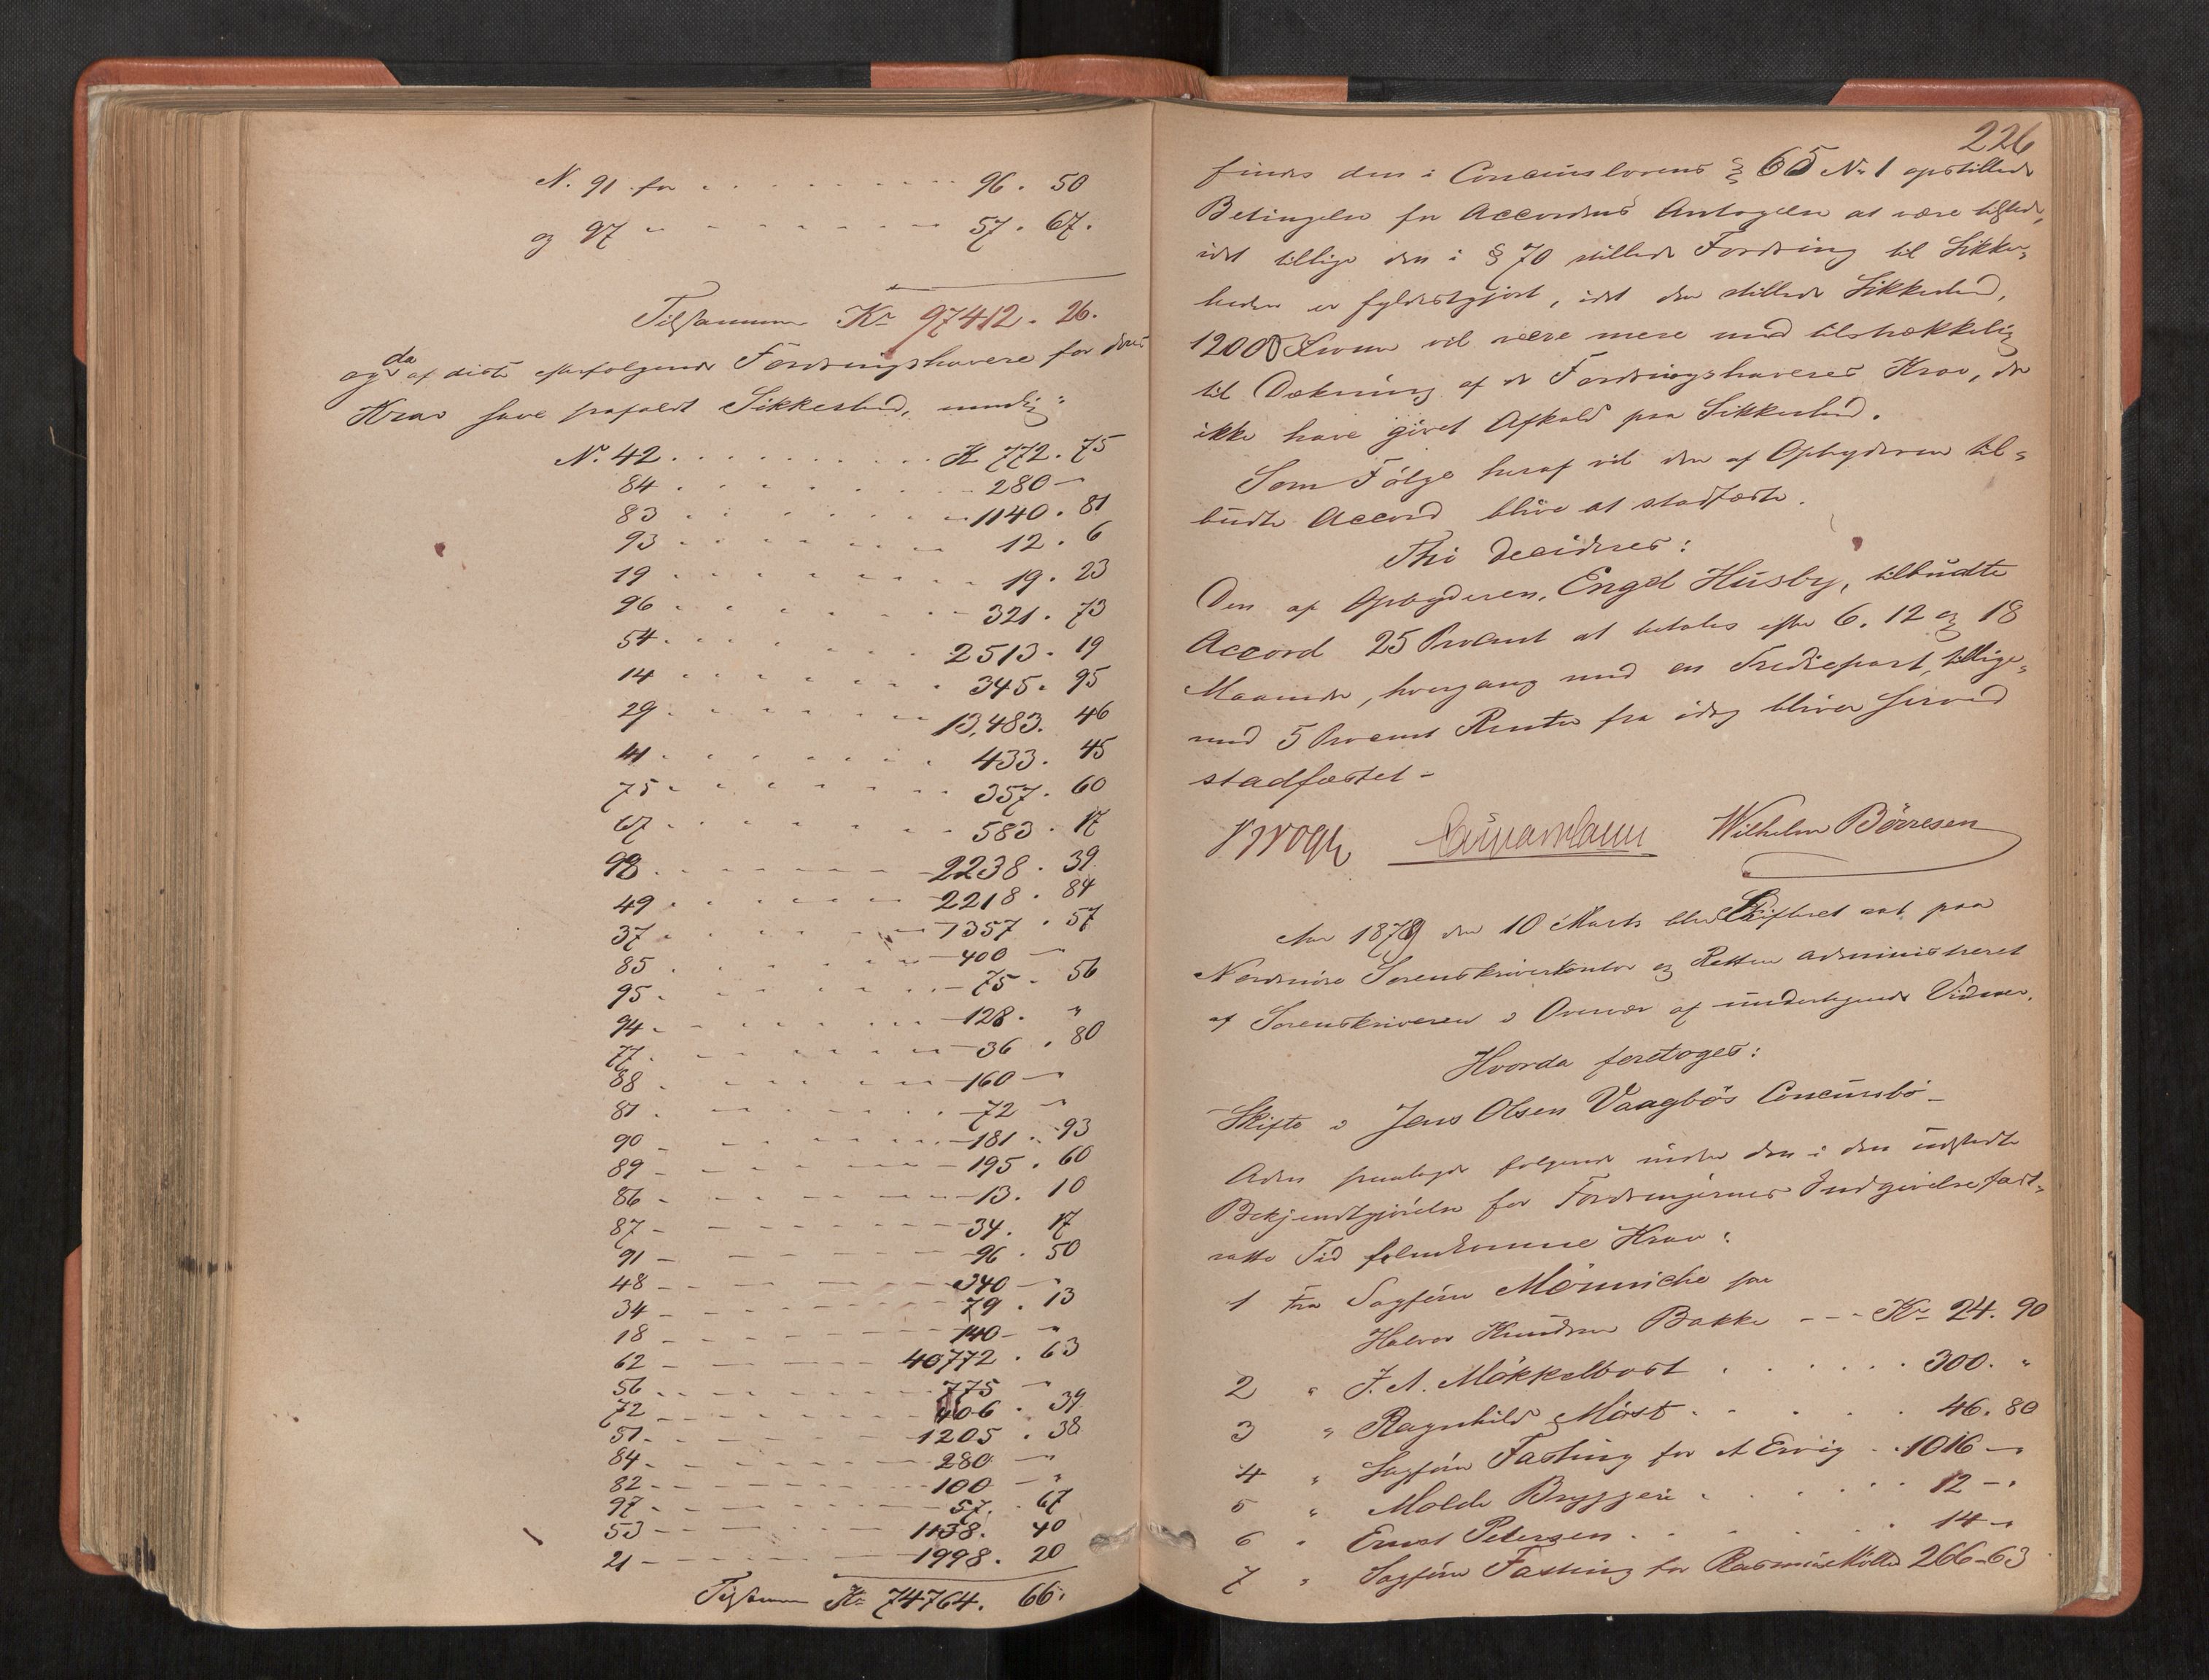 N. 91 for . . . . . . . . . 96. 50
og 97 " - - - - - - - 57. 67.
Tilsammen Kr 97412. 26.
og da af disse efterfølgende Fordringshavere for deres
Krav have frafaldt Sikkerhed, nemlig:
No. 42 . . . . . . . . . . K 772. 75
84 . . . . . . . . 280 -
83 . . . . . . . . 1140. 81
93 . . . . . . . . 12. 6
19 . . . . . . . . 19. 23
96 . . . . . . . . 321. 73
54 . . . . . . . . 2513. 19
14 . . . . . . . . 345. 95
29 . . . . . . . . 13,483. 46
41 . . . . . . . . 433. 45
75 . . . . . . . . 357. 60
67 . . . . . . . . 583. 17
98 . . . . . . . . 2238. 39
49 . . . . . . . . 2218. 84
37 . . . . . . . . 1357. 57
85 . . . . . . . . 400 -
95 . . . . . . . . 75. 56
94 . . . . . . . . 128. "
77 . . . . . . . . 36. 80
88 . . . . . . . . 160 -
81 . . . . . . . . 72 -
90 . . . . . . . . 181. 93
89 . . . . . . . . 195. 60
86 . . . . . . . . 13. 10
87 - - - - - - - - 34. 17
91 - - - - - - - - 96. 50
48 - - - - - - - - 340 -
34 - - - - - - - - 79. 13
18 - - - - - - - - 140 - "
62 - - - - - - - - 40772. 63
56 - - - - - - - - 775 -
72 - - - - - - - - 406. 39
51 - - - - - - - - 1205. 38
84 - - - - - - - - 280 -
82 - - - - - - - - 100 - "
97 - - - - - - - - 57. 67
53 - - - - - - - - 1138. 40
21 - - - - - - - - 1998. 20
Tilsammen Kr 74764. 66.
226
findes den i Concurslovens § 65 No 1 opstillede
Betingelse for Accordens Antagelse at være tilstede,
idet tillige den i § 70 stillede Fordring til Sikker-
heden er fyldestgjort, idet den stillede Sikkerhed,
12000 Kroner vil være mere end tilstrækkelig
til Dækning af de Fordringshaveres Krav, der
ikke have givet Afkald paa Sikkerhed.
Som Følge heraf vil den af Opbyderen til-
budte Accord blive at stadfæste.
Thi decideres:
Den af Opbyderen, Engel Husby, tilbudte
Accord 25 Procent at betales efter 6. 12 og 18
Maaneder, hvergang med en Trediepart, tillige-
med 5 Procent Renter fra idag bliver herved
stadfæstet -
Krogh Wilhelm Börresen
Aar 1879 den 10 Marts blev Skifteret sat paa
Nordmöre Sorenskriverkontor og Retten administreret
af Sorenskriveren i Overvær af undertegnede Vidner.
Hvorda foretoges:
Skifte i Jens Olsen Vaagbös Concursbo -
Aden fremlagde følgende inden den i den udstedte
Bekjendtgjörelse for Fordringernes Indgivelse fast-
satte Tid fremkomne Krav:
1 fra Sagförer Mönniche for
Halvor Knudsen Bakke - - - Kr 24. 90
2 " J. N. Mökkelbost . . . . . . 300. "
3 " Ragnhild Möst . . . . . . 46. 80
4 " Sagförer Fasting for A Ervig . . 1016 -
5 " Molde Bryggeri . . . . . . 12 - "
6 " Ernst Petersen . . . . . . 14 - "
7 " Sagförer Fasting for Rasmus Möller 266-63